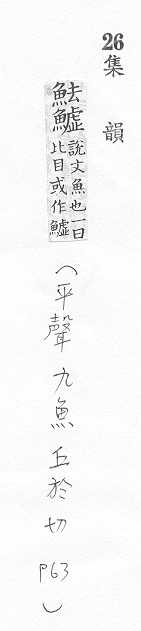 26
集韻
魼鱋說文魚也一曰比目或作鱋
(平聲九魚丘於切 P63)